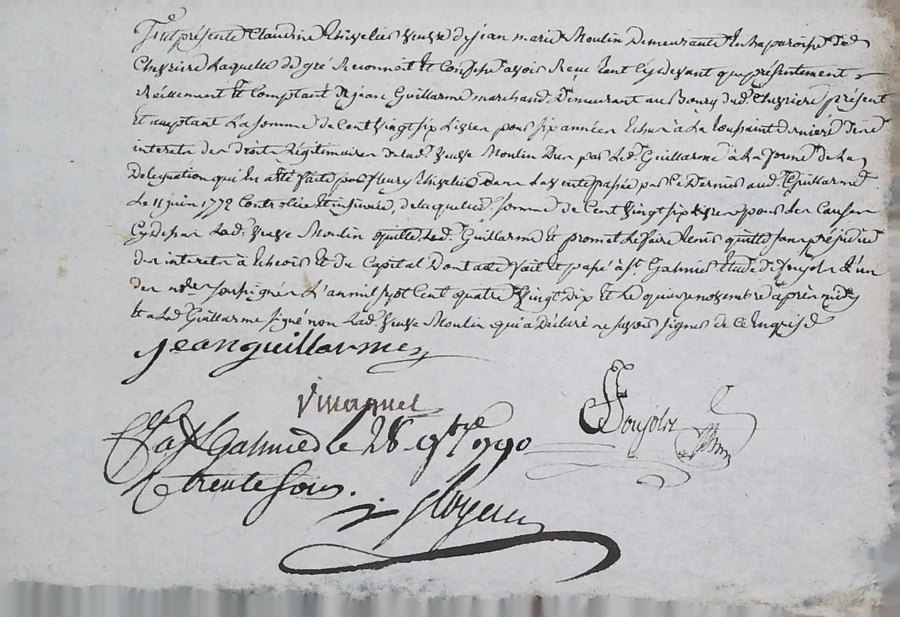 fut présente Claudine Thivelier veuve de jean marie Moulin demeurante en la paroisse de
Chevriere laquelle de gré Reconnoit et Confesse avoir Reçu tant cydevant que présentement
Réellement et Comptant de jean Guillarme marchand demeurant au Bourg dud. Chevriere présent
et acceptant La somme de Cent vingt six Livres pour six années Echues à La toussaint derniere des
interets des droits Légitimaires de lad. veuve Moulin Dus par Led. Guillarme à La forme de La
Délégation qui en a été faite par fleury Thivelier dans La vente passée par Ce Dernier aud. Guillarme
Le 11 juin 1772 Controllée et insinuée, de laquelle somme de Cent vingt six Livres pour les Causes
Cy dessus Lad. veuve Moulin quitte Led. Guillarme et promet Le faire tenir quitte sans préjudice
des interets à Echeoir et du Capital Dont acte fait et passé à St Galmier étude de Poujols L'un
des nores soussignés L'an mil sept Cent quatre vingt dix et Le quinze novembre après midy
et a Led. Guillarme signé non Lad. veuve Moulin qui a Déclaré ne savoir signer de Ce Enquise
jean guillarme
Poujols
Ct à St Galmier le 28 9bre 1790
R trente sous.